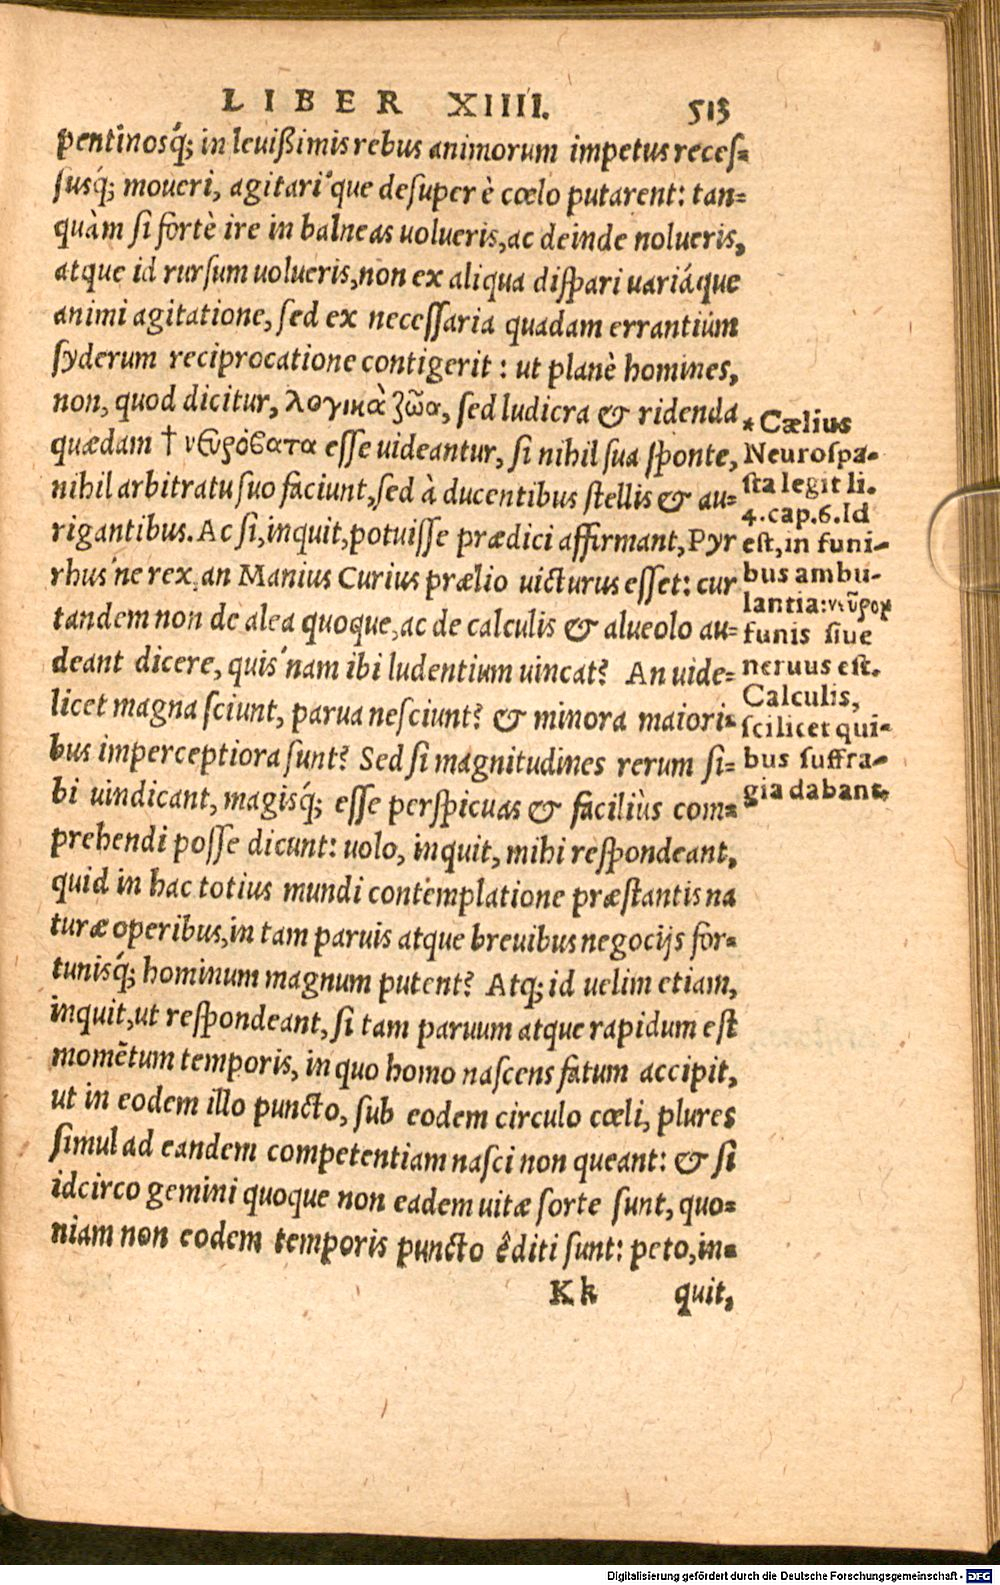 LIBER XIIII. 513
pentinosq́; in leuißimis rebus animorum impetus reces-
susq́; moueri, agitari'que desuper è cœlo putarent: tan-
quàm si fortè ire in balneas uolueris, ac deinde nolueris,
atque id rursum uolueris, non ex aliqua dispari uariáque
animi agitatione, sed ex necessaria quadam errantiúm
syderum reciprocatione contigerit: ut planè homines,
non, quod dicitur, λογικὰ ζῶα, sed ludicra & ridenda
quædam † νευρόβατα esse uideantur, si nihil sua sponte,
nihil arbitratu suo faciunt, sed à ducentibus stellis & au-
rigantibus. Ac si, inquit, potuisse prædici affirmant, Pyr
rhus'ne rex, an Manius Curius prælio uicturus esset: cur
tandem non de alea quoque, ac de calculis & alueolo au-
deant dicere, quis'nam ibi ludentium uincat? An uide-
licet magna sciunt, parua nesciunt? & minora maiori-
bus imperceptiora sunt? Sed si magnitudines rerum si-
bi uindicant, magisq́; esse perspicuas & faciliùs com-
prehendi posse dicunt: uolo, inquit, mihi respondeant,
quid in hac totius mundi contemplatione præstantis na
turæ operibus, in tam paruis atque breuibus negocijs for-
tunisq́; hominum magnum putent? Atq; id uelim etiam,
inquit, ut respondeant, si tam paruum atque rapidum est
momẽtum temporis, in quo homo nascens fatum accipit,
ut in eodem illo puncto, sub eodem circulo cœli, plures
simul ad eandem competentiam nasci non queant: & si
idcirco gemini quoque non eadem uitæ sorte sunt, quo-
niam non eodem temporis puncto êditi sunt: peto, in-
Kk quit,
* Cælius
Neurospa-
sta legit li.
4. cap. 6. Id
est, in funi-
bus ambu-
lantia: νεῦρον
funis siue
neruus est.
Calculis,
scilicet qui-
bus suffra-
gia dabant.
Digitalisierung gefördert durch die Deutsche Forschungsgemeinschaft - DFG